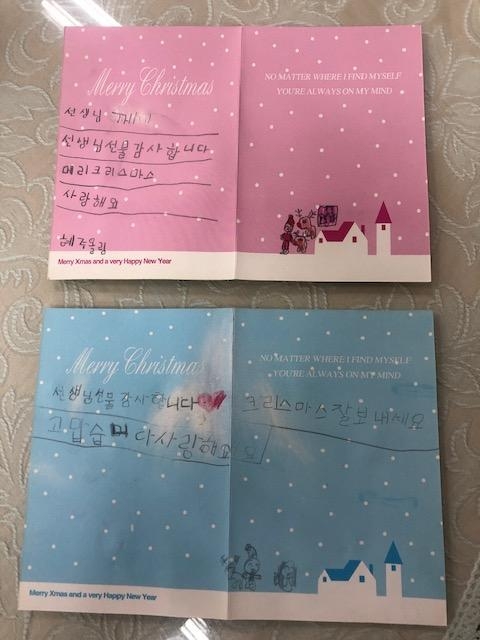 Merry Christmas
선생님
선생님선물감사합니다
메리크리스마스
사랑해요
혜주올림
Merry Xmas and a very Happy New Year
NO MATTER WHERE I FIND MYSELF
YOU'RE ALWAYS ON MY MIND
Merry Christmas
선생님선물감사합니다
고맙습니다사랑해요
Merry Xmas and a very Happy New Year
NO MATTER WHERE I FIND MYSELF
YOU'RE ALWAYS ON MY MIND
크리스마스잘보내세요